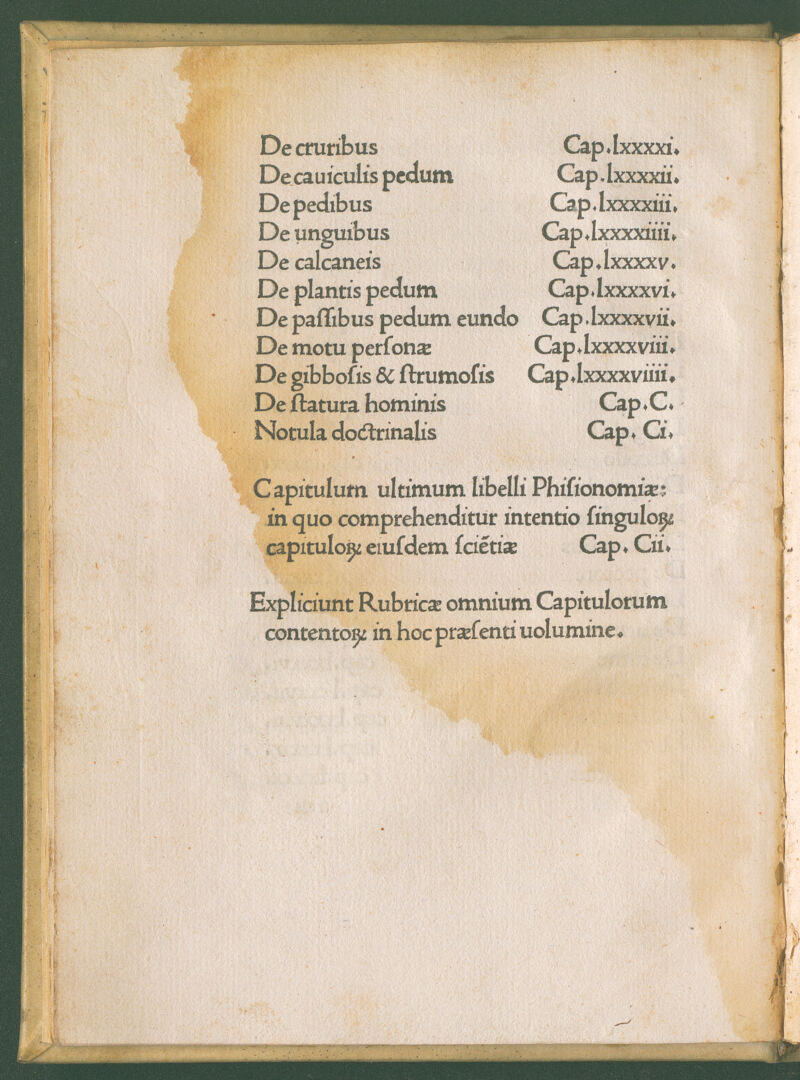 De cruribus Cap.lxxxxi.
De cauiculis pedum Cap.lxxxxii.
De pedibus Cap.lxxxxiii.
De unguibus Cap.lxxxxiiii.
De calcaneis Cap.lxxxxv.
De plantis pedum Cap.lxxxxvi.
De paſſibus pedum eundo Cap.lxxxxvii.
De motu perſonæ Cap.lxxxxviii.
De gibboſis & ſtrumoſis Cap.lxxxxviiii.
De ſtatura hominis Cap.C.
Notula doctrinalis Cap. Ci.
Capitulum ultimum libelli Phiſionomiæ:
in quo comprehenditur intentio ſinguloꝝ
capituloꝝ eiuſdem ſciētiæ Cap. Cii.
Expliciunt Rubricæ omnium Capitulorum
contentoꝝ in hoc præſenti uolumine.